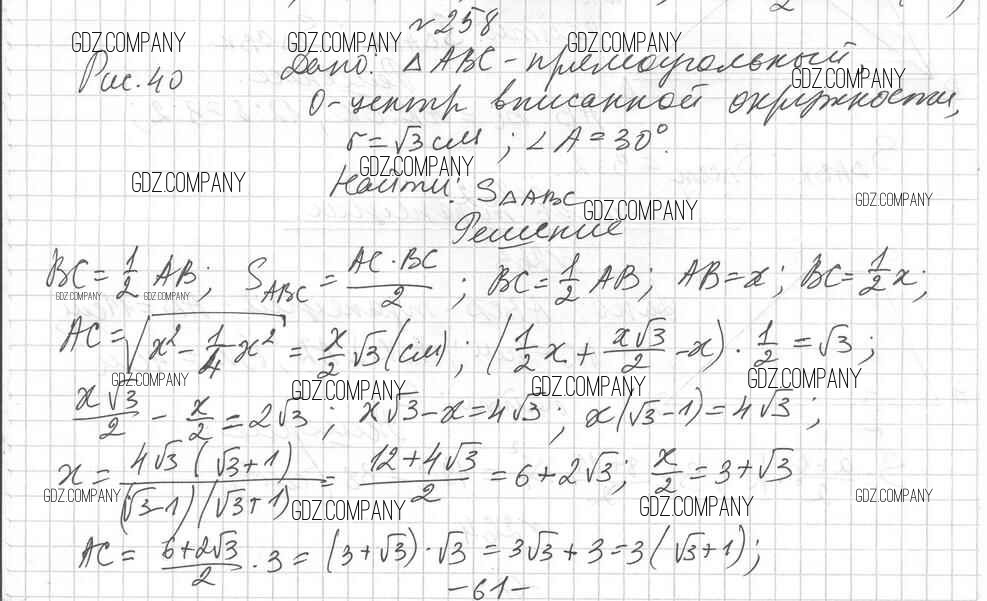 №258
GDZ.COMPANY GDZ.COMPANY GDZ.COMPANY
Рис. 40 Дано: △ABC - прямоугольный,
GDZ.COMPANY
O-центр вписанной окружности,
r = √3 см ; ∠A = 30°.
GDZ.COMPANY
GDZ.COMPANY Найти: S△ABC
GDZ.COMPANY GDZ.COMPANY
Решение
BC = 1/2 AB; S_ABC = AC·BC/2 ; BC = 1/2 AB; AB = x; BC = 1/2 x;
GDZ.COMPANY GDZ.COMPANY
AC = √(x² - 1/4 x²) = x/2 √3 (см); (1/2 x + x√3/2 - x) · 1/2 = √3;
GDZ.COMPANY GDZ.COMPANY GDZ.COMPANY GDZ.COMPANY
x√3/2 - x/2 = 2√3; x√3 - x = 4√3; x(√3-1) = 4√3;
x = 4√3(√3+1)/(√3-1)(√3+1) = 12+4√3/2 = 6+2√3; x/2 = 3+√3
GDZ.COMPANY GDZ.COMPANY GDZ.COMPANY GDZ.COMPANY
AC = 6+2√3/2 · 3 = (3+√3)·√3 = 3√3+3 = 3(√3+1);
-61-